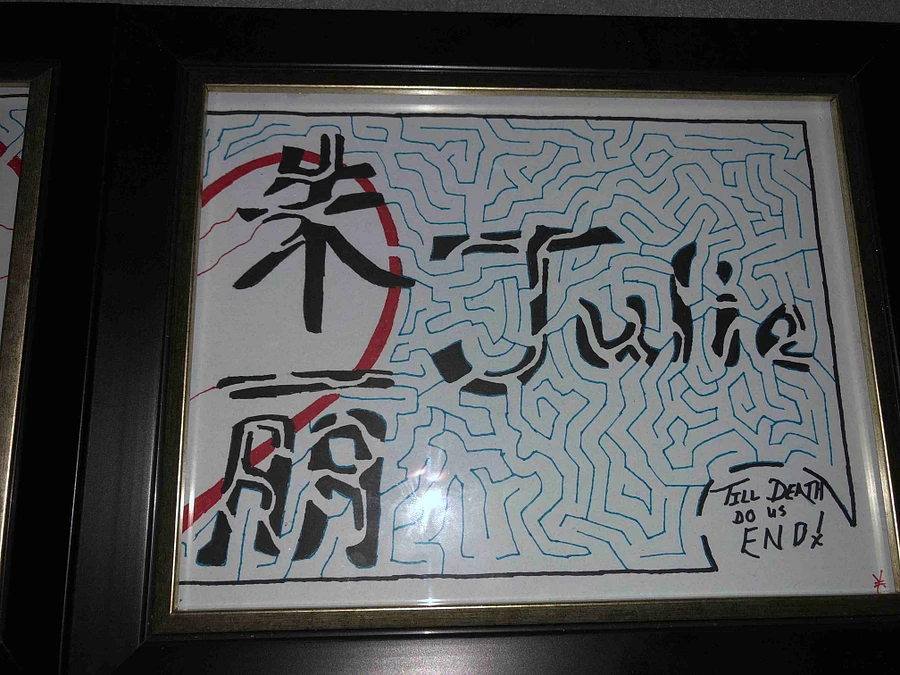 朱
丽
Julie
TILL DEATH
DO US
END!